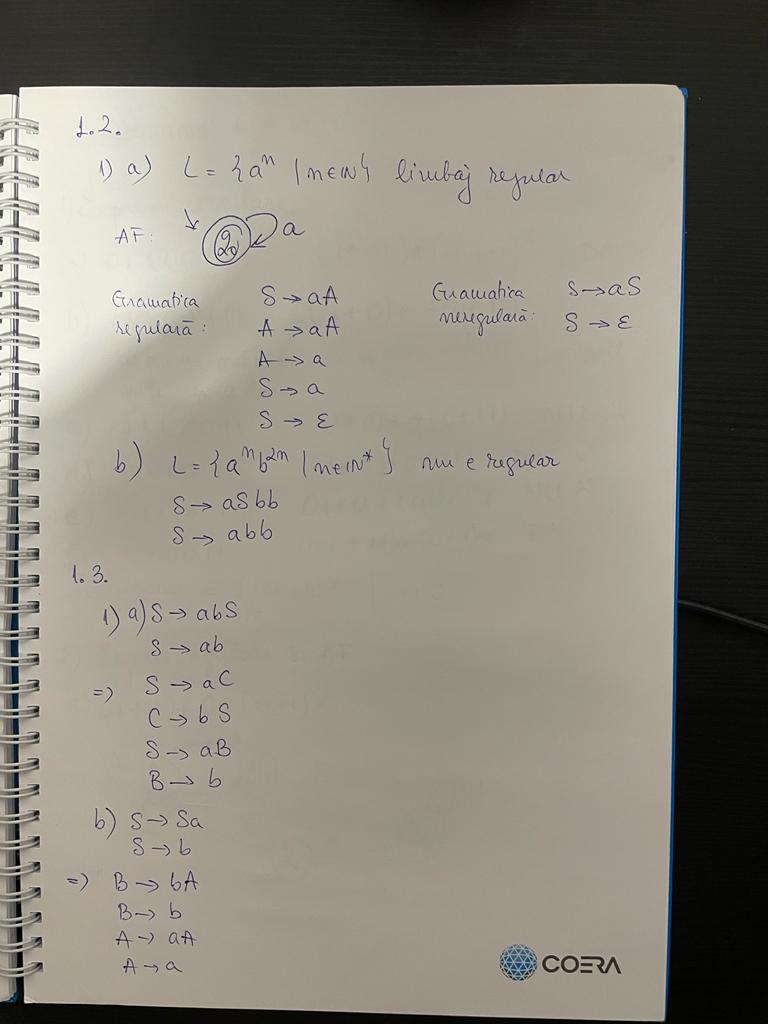 1.2.
1) a) L = {aⁿ | n∈ℕ} limbaj regular
AF: q₀ a
Gramatica regulară:
S → aA
A → aA
A → a
S → a
S → ε
Gramatica neregulară:
S → aS
S → ε
b) L = {aⁿb²ⁿ | n∈ℕ*} nu e regular
S → aSbb
S → abb
1.3.
1) a) S → abS
S → ab
=> S → aC
C → bS
S → aB
B → b
b) S → Sa
S → b
=> B → bA
B → b
A → aA
A → a
COERA